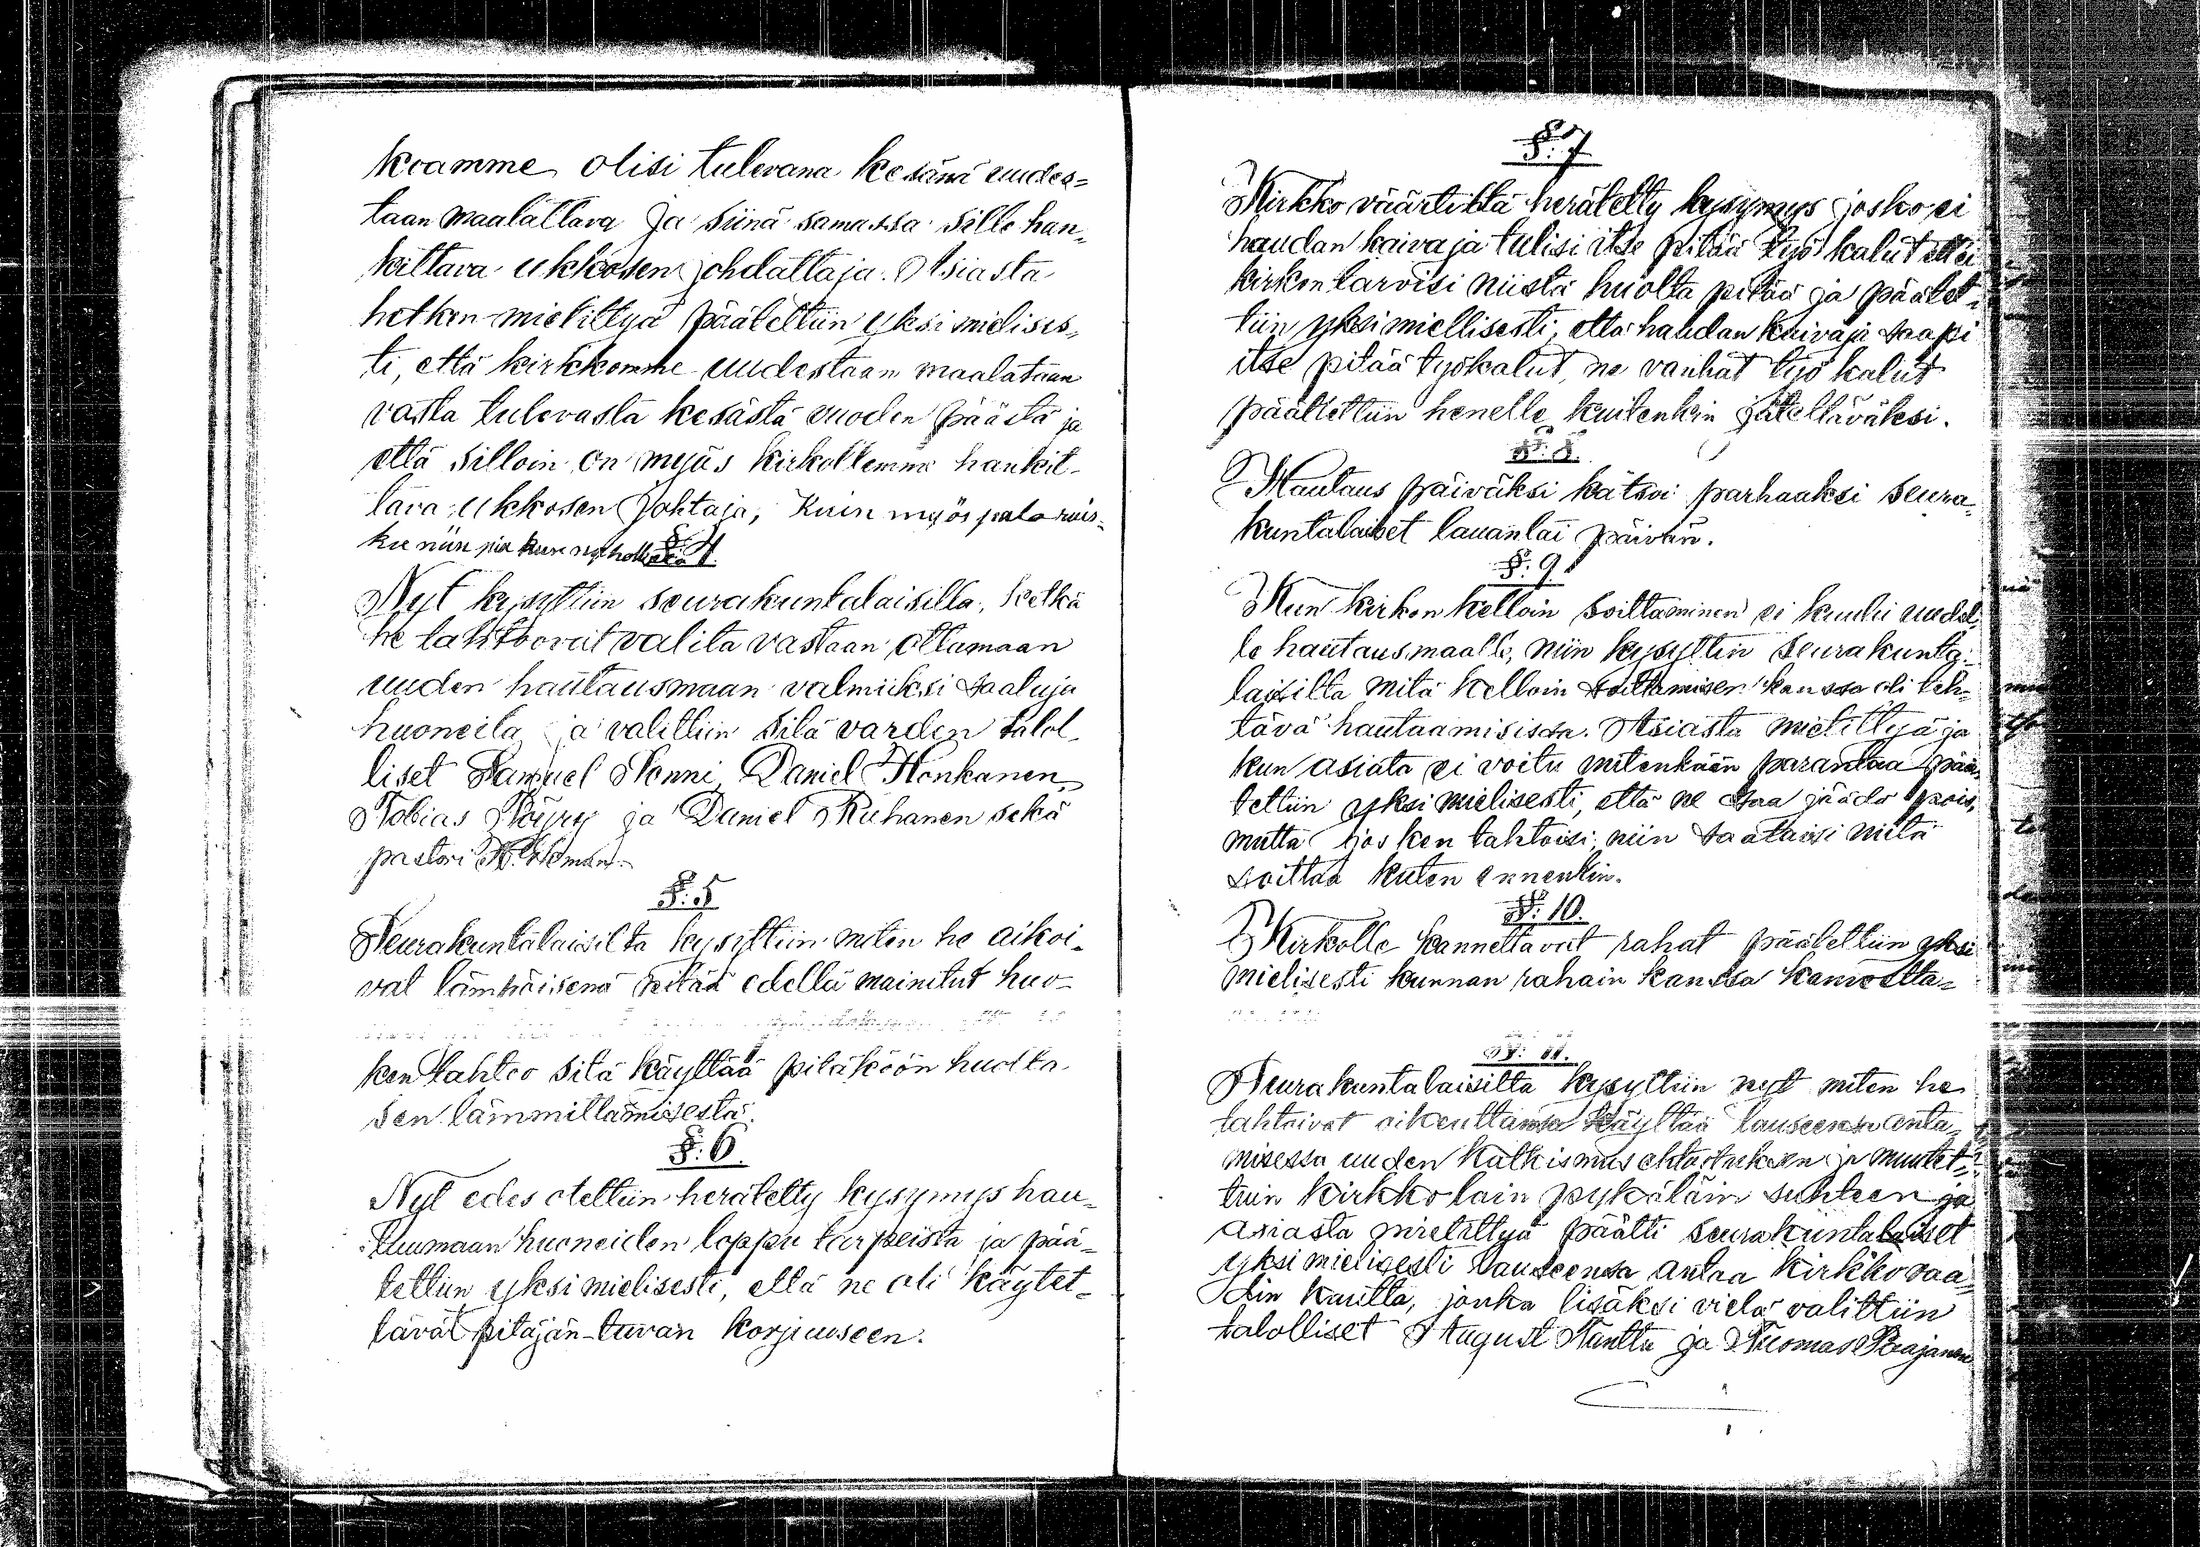 kvamme olisi tulevana kesänä uudes=
taan maalattava ja siinä samassa sille han=
kittava ukkosen johdattaja. Asiasta
hetken mietittyä päätettiin yksimielises=
ti, että kirkkomme uudestaan maalataan
vasta tulevasta kesästä vuoden päästä ja
että silloin on myös kirkollemme hankit=
tava ukkosen johtaja, kuin myös palo ruis=
ku niin pia kuin
§ 4.
Nyt kysyttiin seurakuntalaisilla, ketkä
he tahtoovat valita vastaan ottamaan
uuden hautausmaan valmiiksi saatuja
huoneita ja valittiin sitä varden talol=
liset Samuel Nenni, Daniel Honkanen,
Tobias Röyry ja Daniel Riihanen sekä
pastori
§: 5
Seurakuntalaisilta kysyttiin miten he aikoi=
vat lämpäisenä pitää edellä mainitut huo=
ken tahtoo sitä käyttää pitäköön huolta
sen lämmittämisestä.
§: 6.
Nyt edes otettiin herätetty kysymys hau=
tuumaan huoneiden loppu tarpeista ja pää=
tettiin yksimielisesti, että ne oli käytet=
tävät pitäjän-tuvan korjuuseen.
§: 7
Kirkko väärtiltä herätetty kysymys josko ei
haudan kaivaja tulisi itse pitää työ kalut ettei
kirkon tarvisi niistä huolta pitää ja päätet=
tiin yksimiellisesti, että haudan kaivaja saapi
itse pitää työkalut, ne vanhat työ kalut
päätettiin henelle kuitenkin jätettäväksi.
§: 8.
Hautaus päiväksi kätsoi parhaaksi seura=
kuntalaiset lauantai päivän.
§: 9.
Kun kirkon kelloin soittaminen ei kuulu uudel=
le hautausmaalle, niin kysyttiin seurakunta=
laisilta mitä kelloin soittamisen kanssa oli teh=
tävä hautaamisissa. Asiasta mietittyä ja
kun asiata ei voitu mitenkään parantaa pää=
tettiin yksimielisesti, että ne saa jäädä pois,
mutta jos ken tahtoisi, niin saataisi niitä
soittaa kuten ennenkin.
§: 10.
Kirkolle kannettavat rahat päätettiin yksi
mielisesti kunnan rahain kanssa kannetta=
§: 11.
Seurakuntalaisilta kysyttiin nyt miten he
tahtoivat oikeuttansa käyttää lauseensa anta=
misessa uuden katkismus ehdotuksen ja muutet=
tuin kirkkolain pykäläin suhteen ja
asiasta mietittyä päätti seurakuntalaiset
yksimielisesti lauseensa antaa kirkkoraa=
din kautta, jonka lisäksi vielä valittiin
talolliset August Nanttu ja Tuomas Paajanen